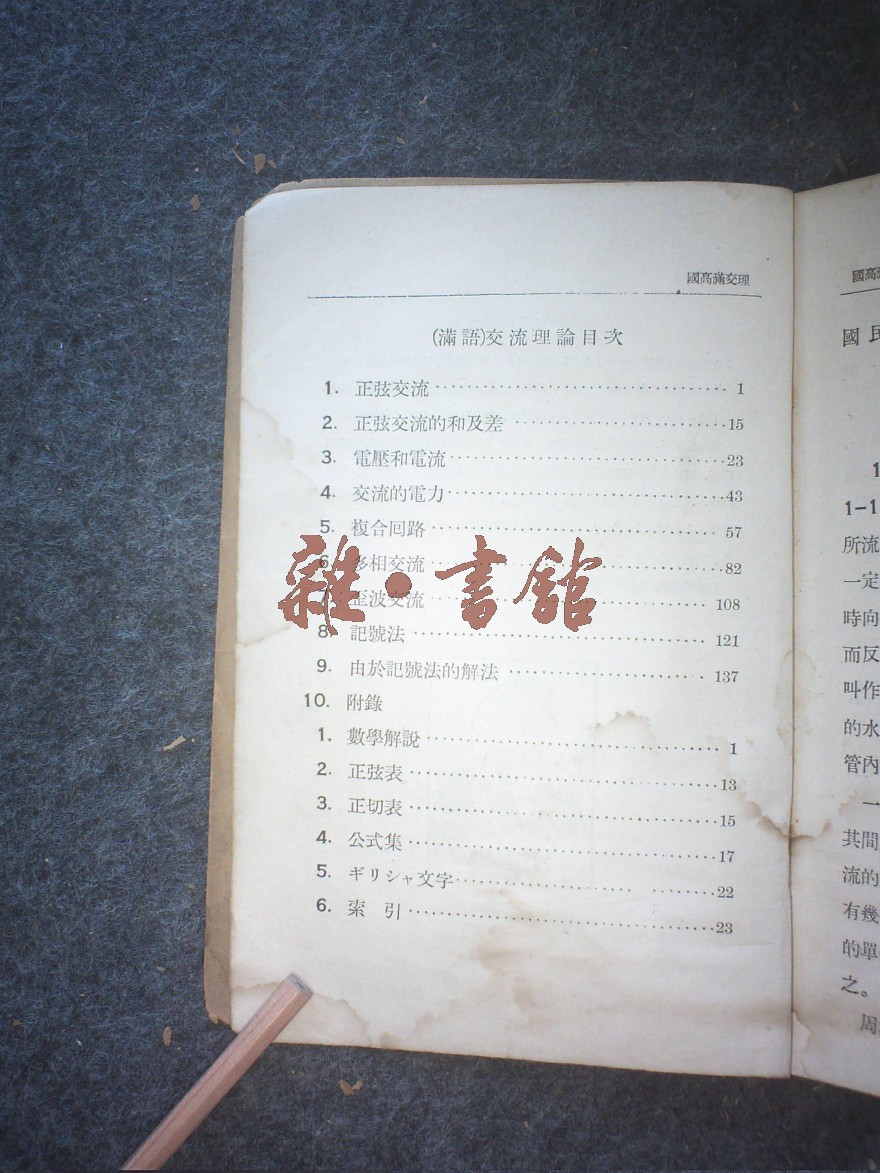 國高滿交理
(滿語)交流理論目次
1. 正弦交流 1
2. 正弦交流的和及差 15
3. 電壓和電流 23
4. 交流的電力 43
5. 複合回路 57
6. 多相交流 82
7. 歪波交流 108
8. 記號法 121
9. 由於記號法的解法 137
10. 附錄
1. 數學解說 1
2. 正弦表 13
3. 正切表 15
4. 公式集 17
5. ギリシャ文字 22
6. 索引 23
雜·書館
國高
國民
1
1-1
所流
一定
時向
而反
叫作
的水
管內
一
其間
流的
有幾
的單
之。
周